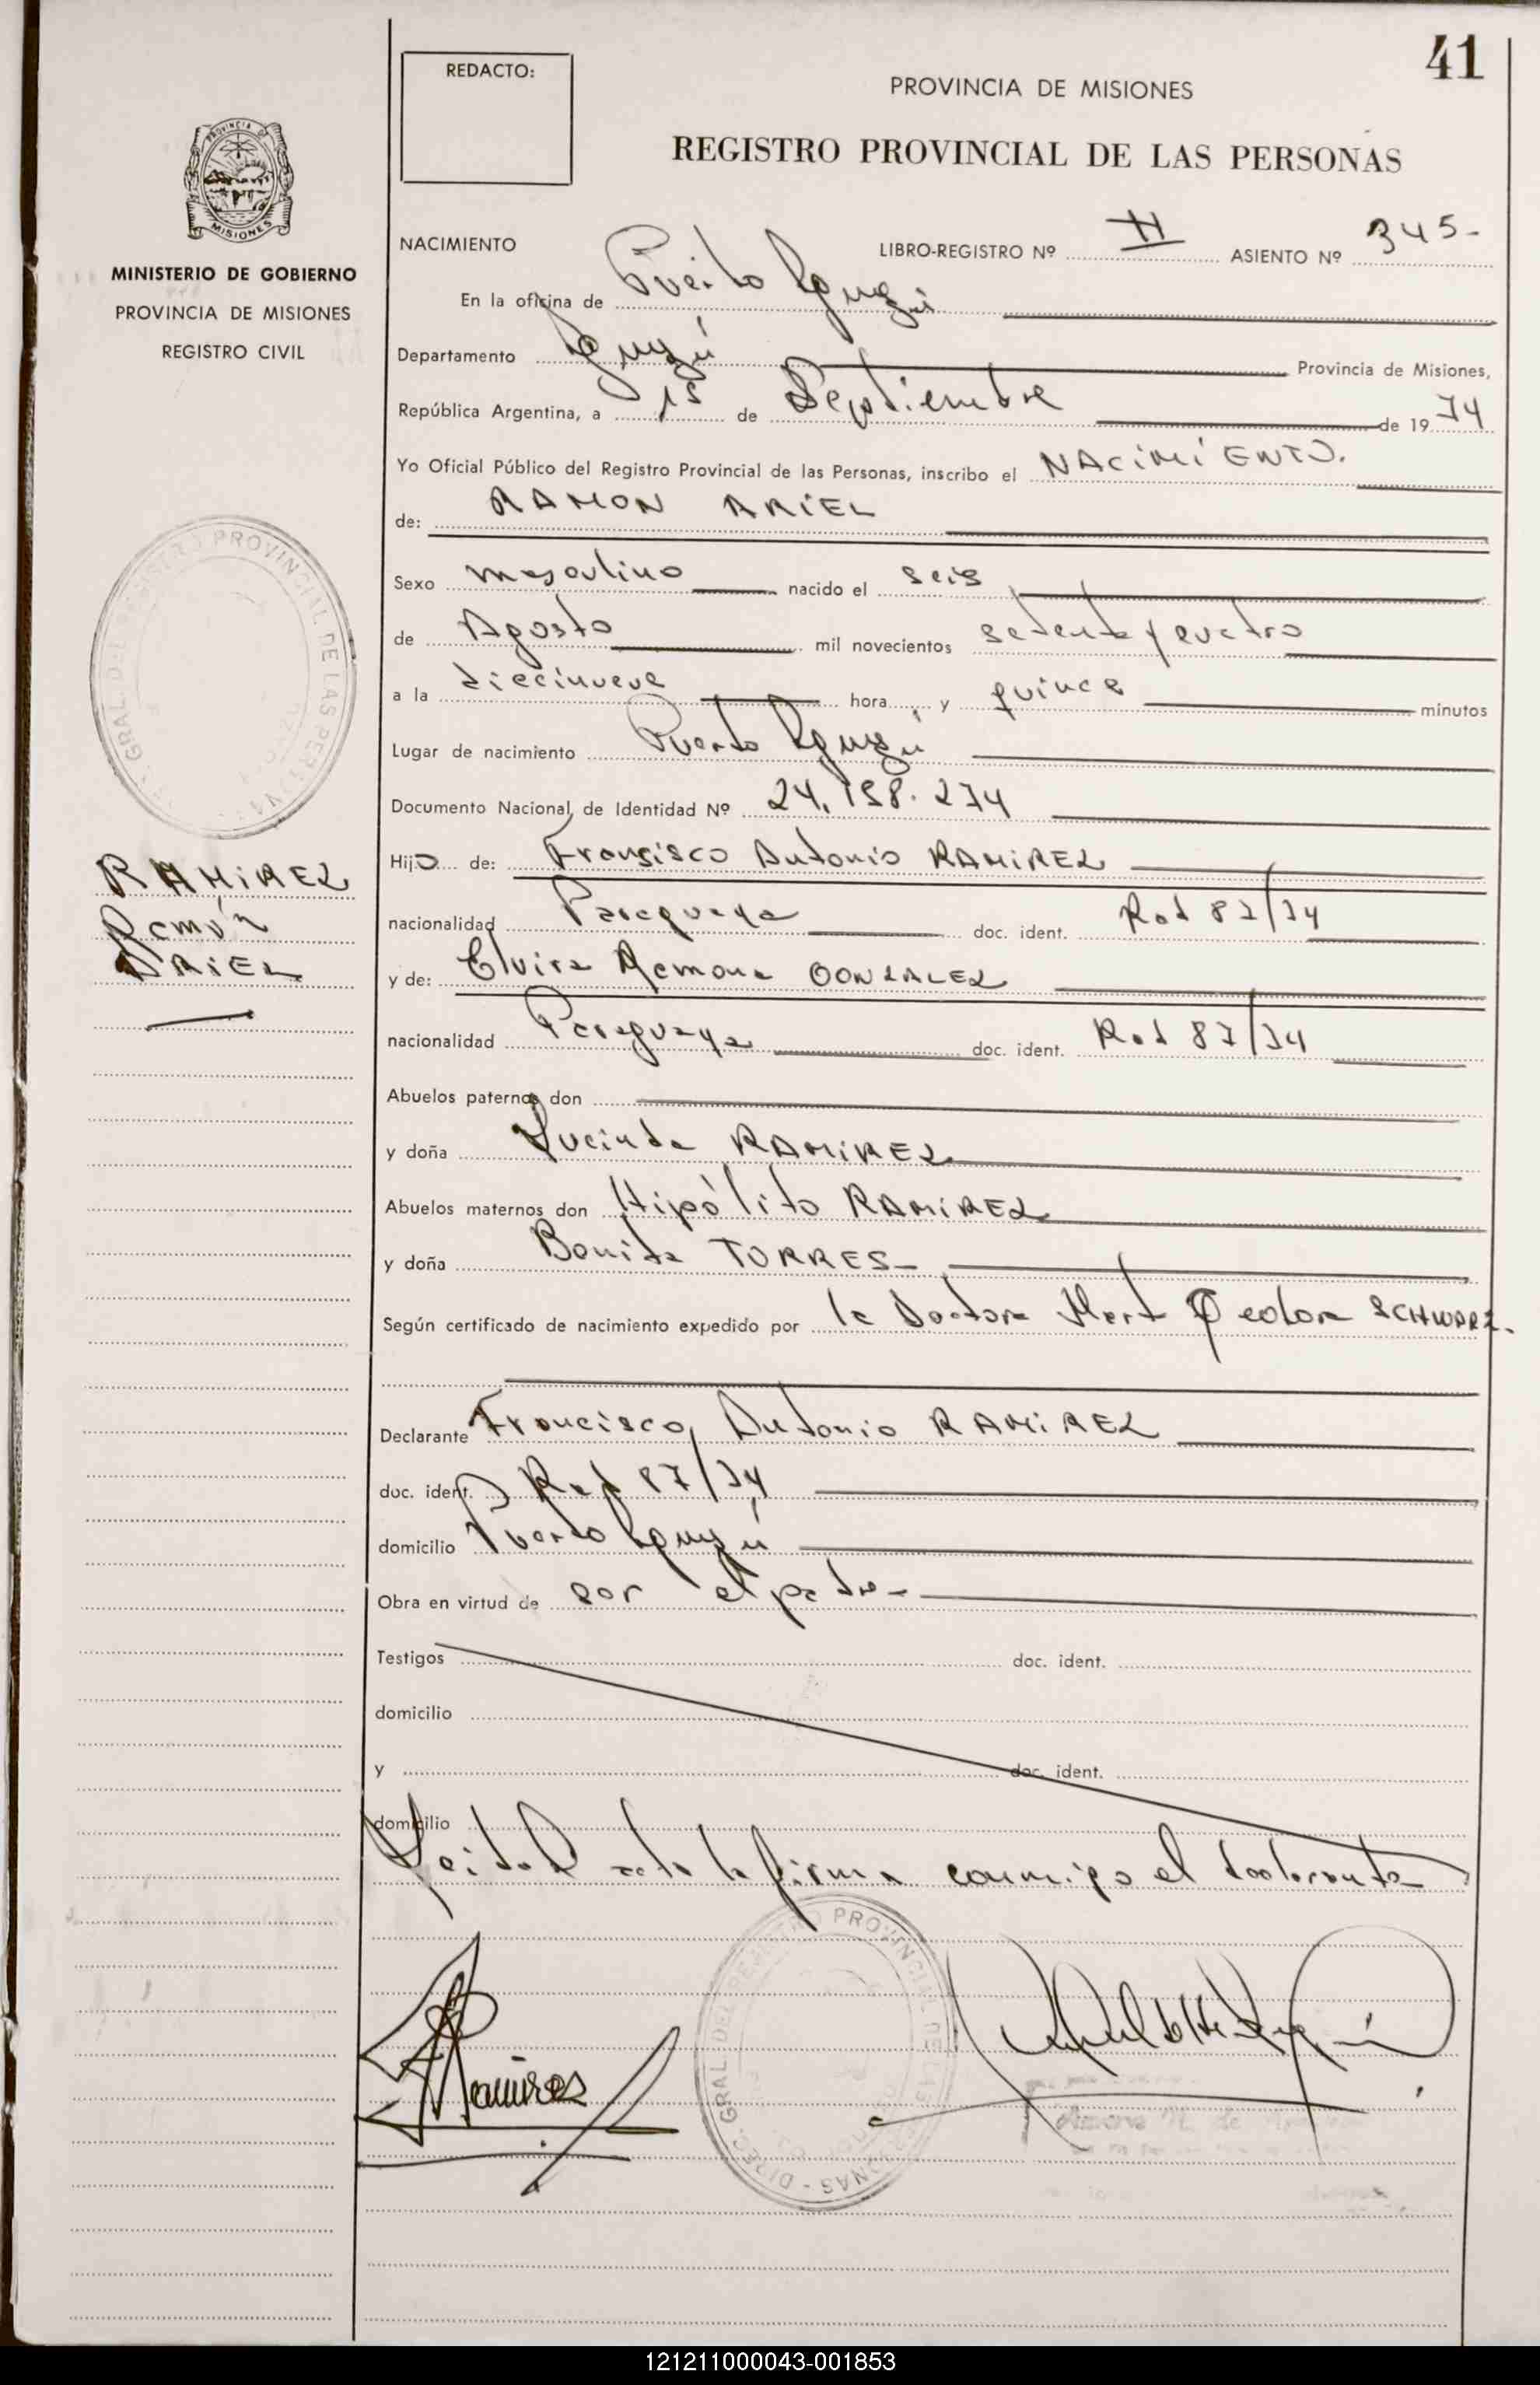 41
REDACTO:
PROVINCIA DE MISIONES
REGISTRO PROVINCIAL DE LAS PERSONAS
PROVINCIA DE
MISIONES
MINISTERIO DE GOBIERNO
PROVINCIA DE MISIONES
REGISTRO CIVIL
NACIMIENTO LIBRO-REGISTRO Nº II ASIENTO Nº 345-
En la oficina de Puerto Iguazú
Departamento Iguazú Provincia de Misiones,
República Argentina, a 15 de Septiembre de 1974
Yo Oficial Público del Registro Provincial de las Personas, inscribo el NACIMIENTO.
de: RAMON ARIEL
Sexo masculino nacido el seis
de Agosto mil novecientos setenta y cuatro
a la diecinueve hora y quince minutos
Lugar de nacimiento Puerto Iguazú
Documento Nacional de Identidad Nº 24.158.274
Hijo de: Francisco Antonio RAMIREZ
RAMIREZ
Ramón
ARIEL
nacionalidad Paraguaya doc. ident. Rad 87/74
y de: Elvira Ramona GONZALEZ
nacionalidad Paraguaya doc. ident. Rad 87/74
Abuelos paternos don
y doña Lucinda RAMIREZ
Abuelos maternos don Hipólito RAMIREZ
y doña Bonita TORRES-
Según certificado de nacimiento expedido por la Doctora Marta SCHWARZ.
Declarante Francisco Antonio RAMIREZ
doc. ident. Rad 87/74
domicilio Puerto Iguazú
Obra en virtud de ser el padre-
Testigos doc. ident.
domicilio
y doc. ident.
domicilio
Leida el acta la firma conmigo el declarante
Ramirez
DIREC. GRAL. DEL REGISTRO PROVINCIAL DE LAS PERSONAS
121211000043-001853